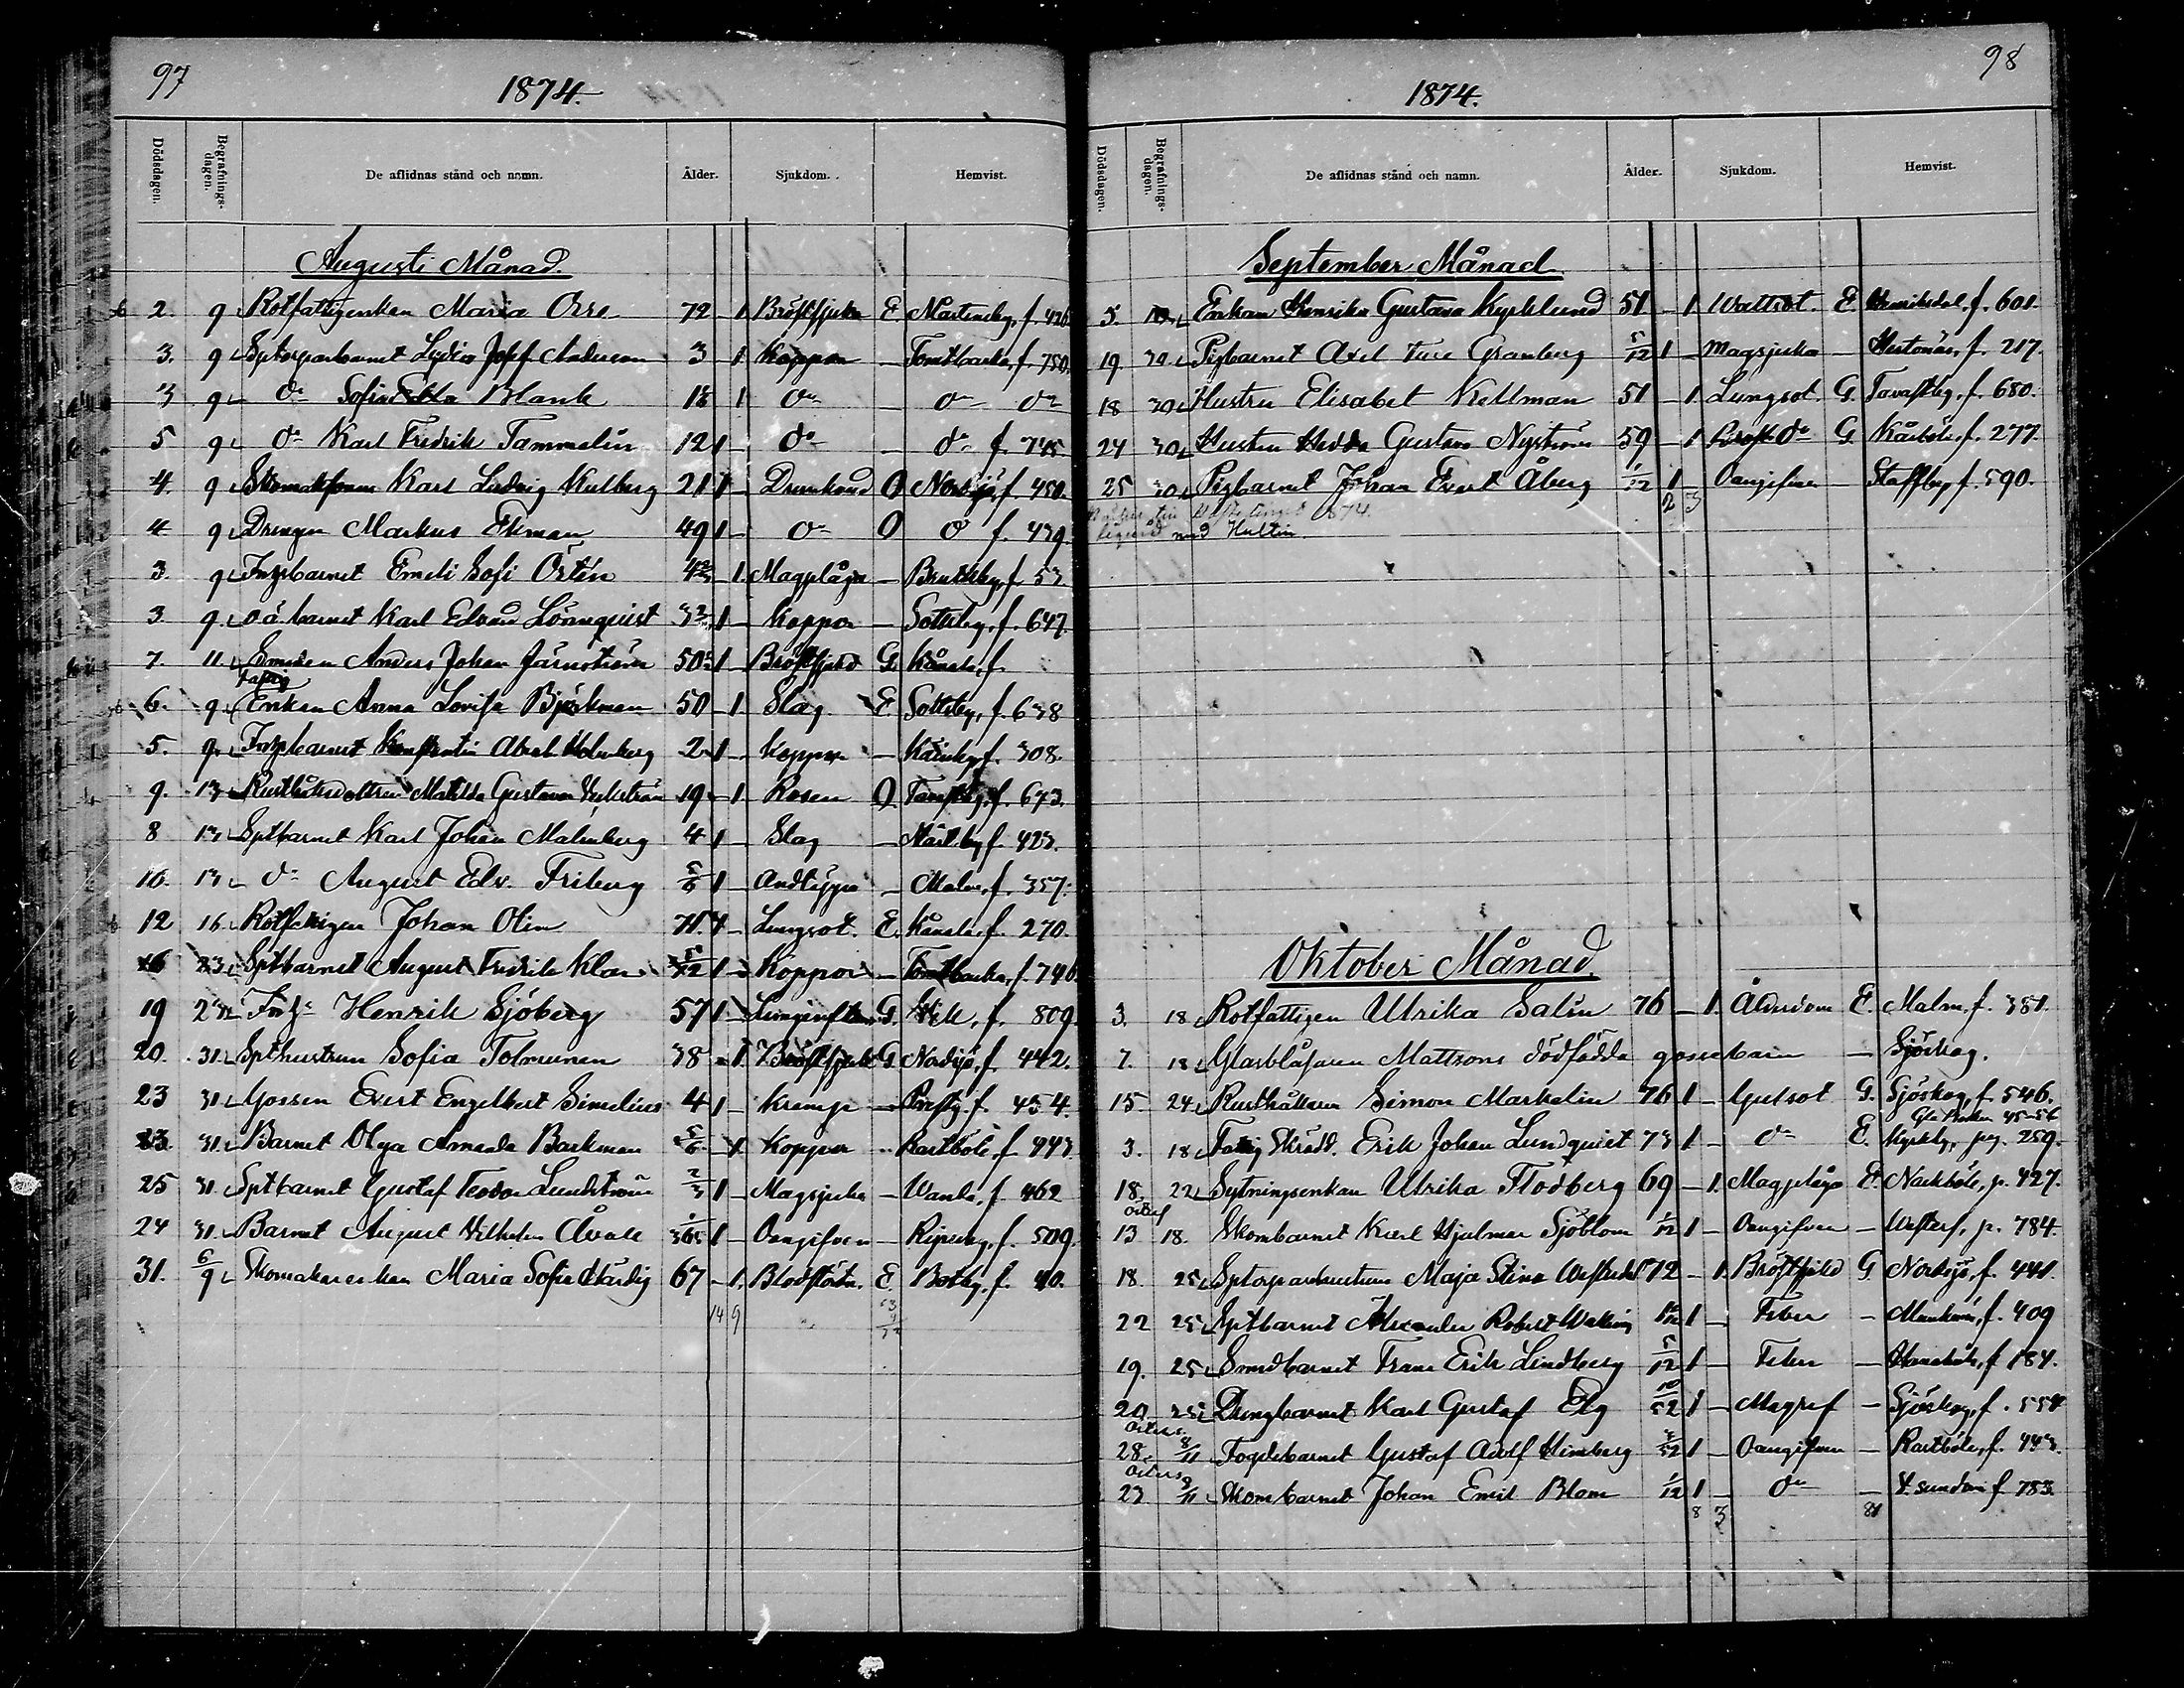 97
1874.
Dödsdagen. Begrafnings-dagen. De aflidnas stånd och namn. Ålder. Sjukdom. Hemvist.
Augusti Månad.
2. 9 Rotfattigenkan Maria Orre 72 - 1 Bröstsjuka E. Martensby, f. 426
3. 9 Sptorparbarnet Lydia Josef. Anderson 3 - 1 Koppor - Tomtbacka, f. 750.
3 9 do Sofia Blank 1 do - do do
5 9 do Karl Fredrik Tammelin 12 1 - do - do f. 745
4. 9 Karl Ludvig Kulberg 21 1 - Drunknad O Nordsjö f. 450.
4 9 Drengen Markus Ekman 49 1 - do O do f. 439.
3. 9 Emeli Sofi Östén 4 - 1. Magplåga - f. 53.
3 9. barnet Karl Edvard Lönnquist 1 - Koppor - Sottsby, f. 647.
7. 11. Smeden Anders Johan Järnström 50 1 - Bröstsjuk G. Kånsla, f.
6. 9. Fattig Enkan Anna Lovisa Björkman 50 - 1 Slag E. Sottsby, f. 638
5. 9. Konstantin Abel Holmberg 2 1 - Koppor - f. 308.
9. 13 Matilda Gustava 19 - 1 Rosen O. f. 673.
8 13 Sptbarnet Karl Johan Malmberg 4 1 - Slag - f. 423.
10. 13 do August Edv. Friberg 5/6 1 - Andtäppa - Malm, f. 357.
12 16. Rotfattigen Johan Olin 71. 1 - Lungsot. E. Kånsla, f. 270.
16 23. Sptbarnet August Fredrik Klar 5/12 1 - Koppor - Tomtbacka, f. 746
19 Henrik Sjöberg 57 1 - G. f. 809.
20. 31. Spthustrun Sofia Tolmunen 38 - 1. Bröstsjuk G. Nordsjö, f. 442.
23 31 Gossen Evert Engelbert Simelius 4 1 - Kramp - f. 454.
23. 31. Barnet Olga Amanda Backman 5/6 - 1. Koppor - Rastböle, f. 443
25 31. Sptbarnet Gustaf Teodor Lundström 2/3 1 - Magsjuka - Wanda, f. 462
24 31. Barnet August Vilhelm 1/365 1 - Oangifven - Ripuby, f. 509.
31. 6/9 Skomakarenkan Maria Sofia Härdig 67 - 1. Blodstörtn. E. Botby, f. 40.
14 9
98
1874.
Dödsdagen. Begrafnings-dagen. De aflidnas stånd och namn. Ålder. Sjukdom. Hemvist.
September Månad
5. Enkan Henrika Gustava Kyrklund 51 - 1 Wattsot. E. Henriksdal, f. 601.
19. 30. Pigbarnet Axel Ture Granberg 5/12 1 - Magsjuka - f. 217.
18 30. Hustru Elisabet Kellman 51 - 1 Lungsot. G. Tavastby, f. 680.
24 30. Hustru Hedda Gustava Nyström 59 - 1 Bröst do G. Kårböle, f. 277.
25 30 Pigbarnet Johan Evert Åberg 1/12 1 - Oangifven - Staffby, f. 590.
2 3
1874.
Hultin.
Oktober Månad.
3. 18 Rotfattigen Ulrika Salin 76 - 1. Ålderdom E. Malm, f. 381.
7. 18 Glasblåsaren Mattsons dödfödda gossebarn - Sjöskog.
15. 24. Rusthållaren Simon Markelin 76 1 - Gulsot G. Sjöskog, f. 546.
45-56
3. 18 Fattig Skrädd. Erik Johan Lundquist 73 1 - do E. Kyrkby, pag. 259.
18. 22 Sytningsenkan Ulrika Flodberg 69 - 1. Magplåga E. Nackböle, p. 427.
13 18. Skombarnet Karl Hjalmar Sjöblom 1/12 1 - Oangifven - p. 784.
18. 25 Maja Stina 72 - 1. Bröstsjuk G. Nordsjö, f. 441.
22 25 Sptbarnet Alexander Robert 1 - Feber - f. 409
19. 25 Smedbarnet Frans Erik Lindberg 5/12 1 - Feber - f. 184.
20. 25 Drengbarnet Karl Gustaf Elg 10/52 1 - Magref - Sjöskog, f. 554
28. 8/11 Fogdebarnet Gustaf Adolf 1 - Oangifven - Rastböle, f. 443.
23 8/11 Skombarnet Johan Emil Blom 1/12 1 - do - f. 783.
8 3